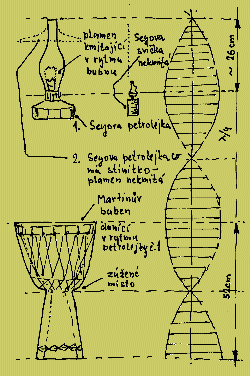 plamen
kmitající
v rytmu
bubnu
Segova
svíčka
nekmitá
~ 26cm
1. Segova petrolejka
λ/4
2. Segova petrolejka
má stínítko-
plamen nekmitá
Martinův
buben
v rytmu
petrolejky č.1
52cm
zúžené
místo